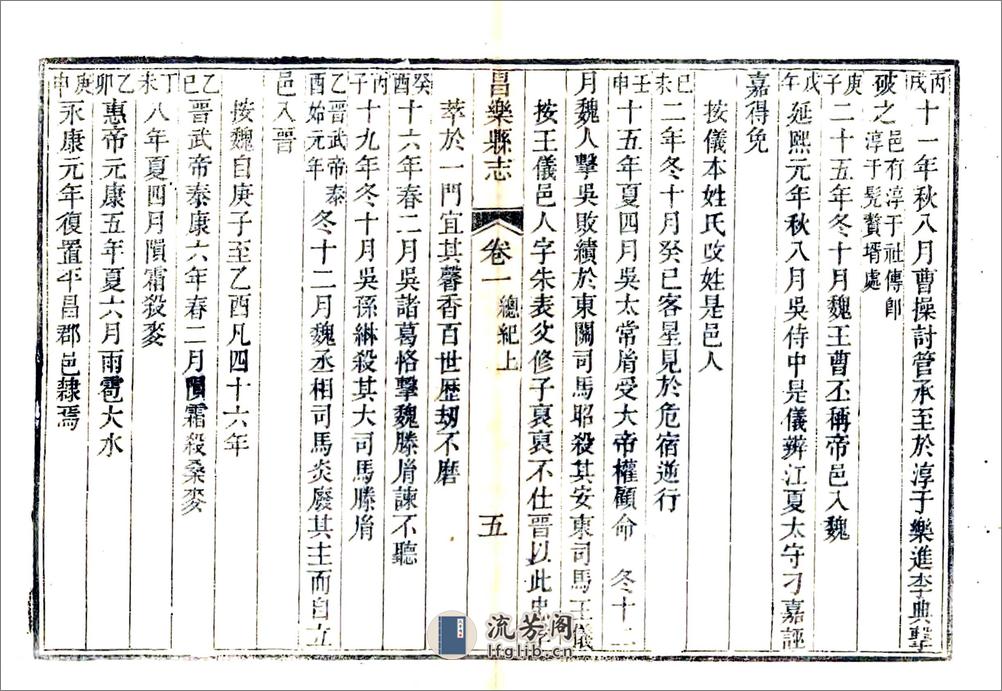 丙戌 十一年秋八月曹操討管承至於淳于樂進李典擊
破之 邑有淳于社傳卽淳于髡贅壻處
庚子 二十五年冬十月魏王曹丕稱帝邑入魏
戊午 延熙元年秋八月吳侍中是儀辨江夏太守刁嘉誣
嘉得免
按儀本姓氏改姓是邑人
己未 二年冬十月癸巳客星見於危宿逆行
壬申 十五年夏四月吳太常𦙍受大帝權顧命 冬十二
月魏人擊吳敗績於東關司馬昭殺其安東司馬王儀
按王儀邑人字朱表父修子裒裒不仕晉以此忠孝
昌樂縣志 卷一 總紀上 五
萃於一門宜其馨香百世歷刼不磨
癸酉 十六年春二月吳諸葛恪擊魏滕𦙍諫不聽
丙子 十九年冬十月吳孫綝殺其大司馬滕𦙍
乙酉 晉武帝泰始元年 冬十二月魏丞相司馬炎廢其主而自立
邑入晉
按魏自庚子至乙酉凡四十六年
乙巳 晉武帝泰康六年春二月隕霜殺桑麥
丁未 八年夏四月隕霜殺麥
乙卯 惠帝元康五年夏六月雨雹大水
庚申 永康元年復置平昌郡邑隸焉
流芳阁
lfglib.cn